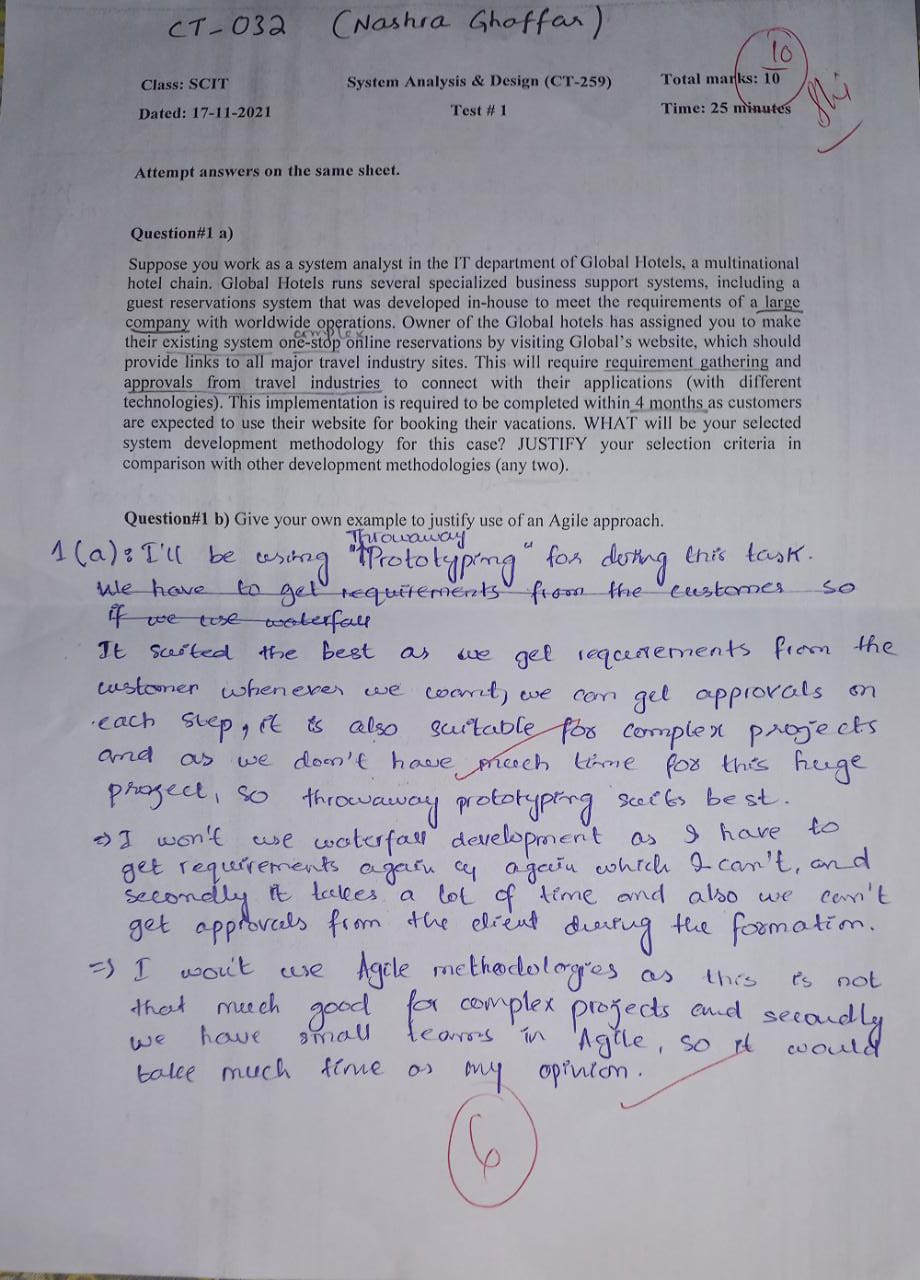 CT-032 (Nashra Ghaffar)
10
Class: SCIT System Analysis & Design (CT-259) Total marks: 10
Dated: 17-11-2021 Test # 1 Time: 25 minutes
Attempt answers on the same sheet.
Question#1 a)
Suppose you work as a system analyst in the IT department of Global Hotels, a multinational
hotel chain. Global Hotels runs several specialized business support systems, including a
guest reservations system that was developed in-house to meet the requirements of a large
company with worldwide operations. Owner of the Global hotels has assigned you to make
complex
their existing system one-stop online reservations by visiting Global's website, which should
provide links to all major travel industry sites. This will require requirement gathering and
approvals from travel industries to connect with their applications (with different
technologies). This implementation is required to be completed within 4 months as customers
are expected to use their website for booking their vacations. WHAT will be your selected
system development methodology for this case? JUSTIFY your selection criteria in
comparison with other development methodologies (any two).
Question#1 b) Give your own example to justify use of an Agile approach.
Throwaway
1(a): I'll be using "Prototyping" for doing this task.
We have to get requirements from the customer so
if we use waterfall
It suited the best as we get requirements from the
customer whenever we want, we can get approvals on
each step, it is also suitable for complex projects
and as we don't have much time for this huge
project, so throwaway prototyping suits best.
⇒ I won't use waterfall development as I have to
get requirements again & again which I can't, and
secondly it takes a lot of time and also we can't
get approvals from the client during the formation.
⇒ I won't use Agile methodologies as this is not
that much good for complex projects and secondly
we have small teams in Agile, so it would
take much time as my opinion.
6